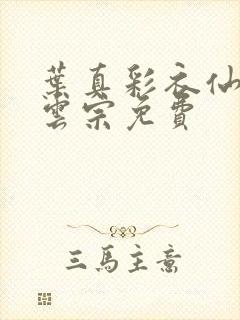 葉真彩衣仙
雲宗免費
三馬主意